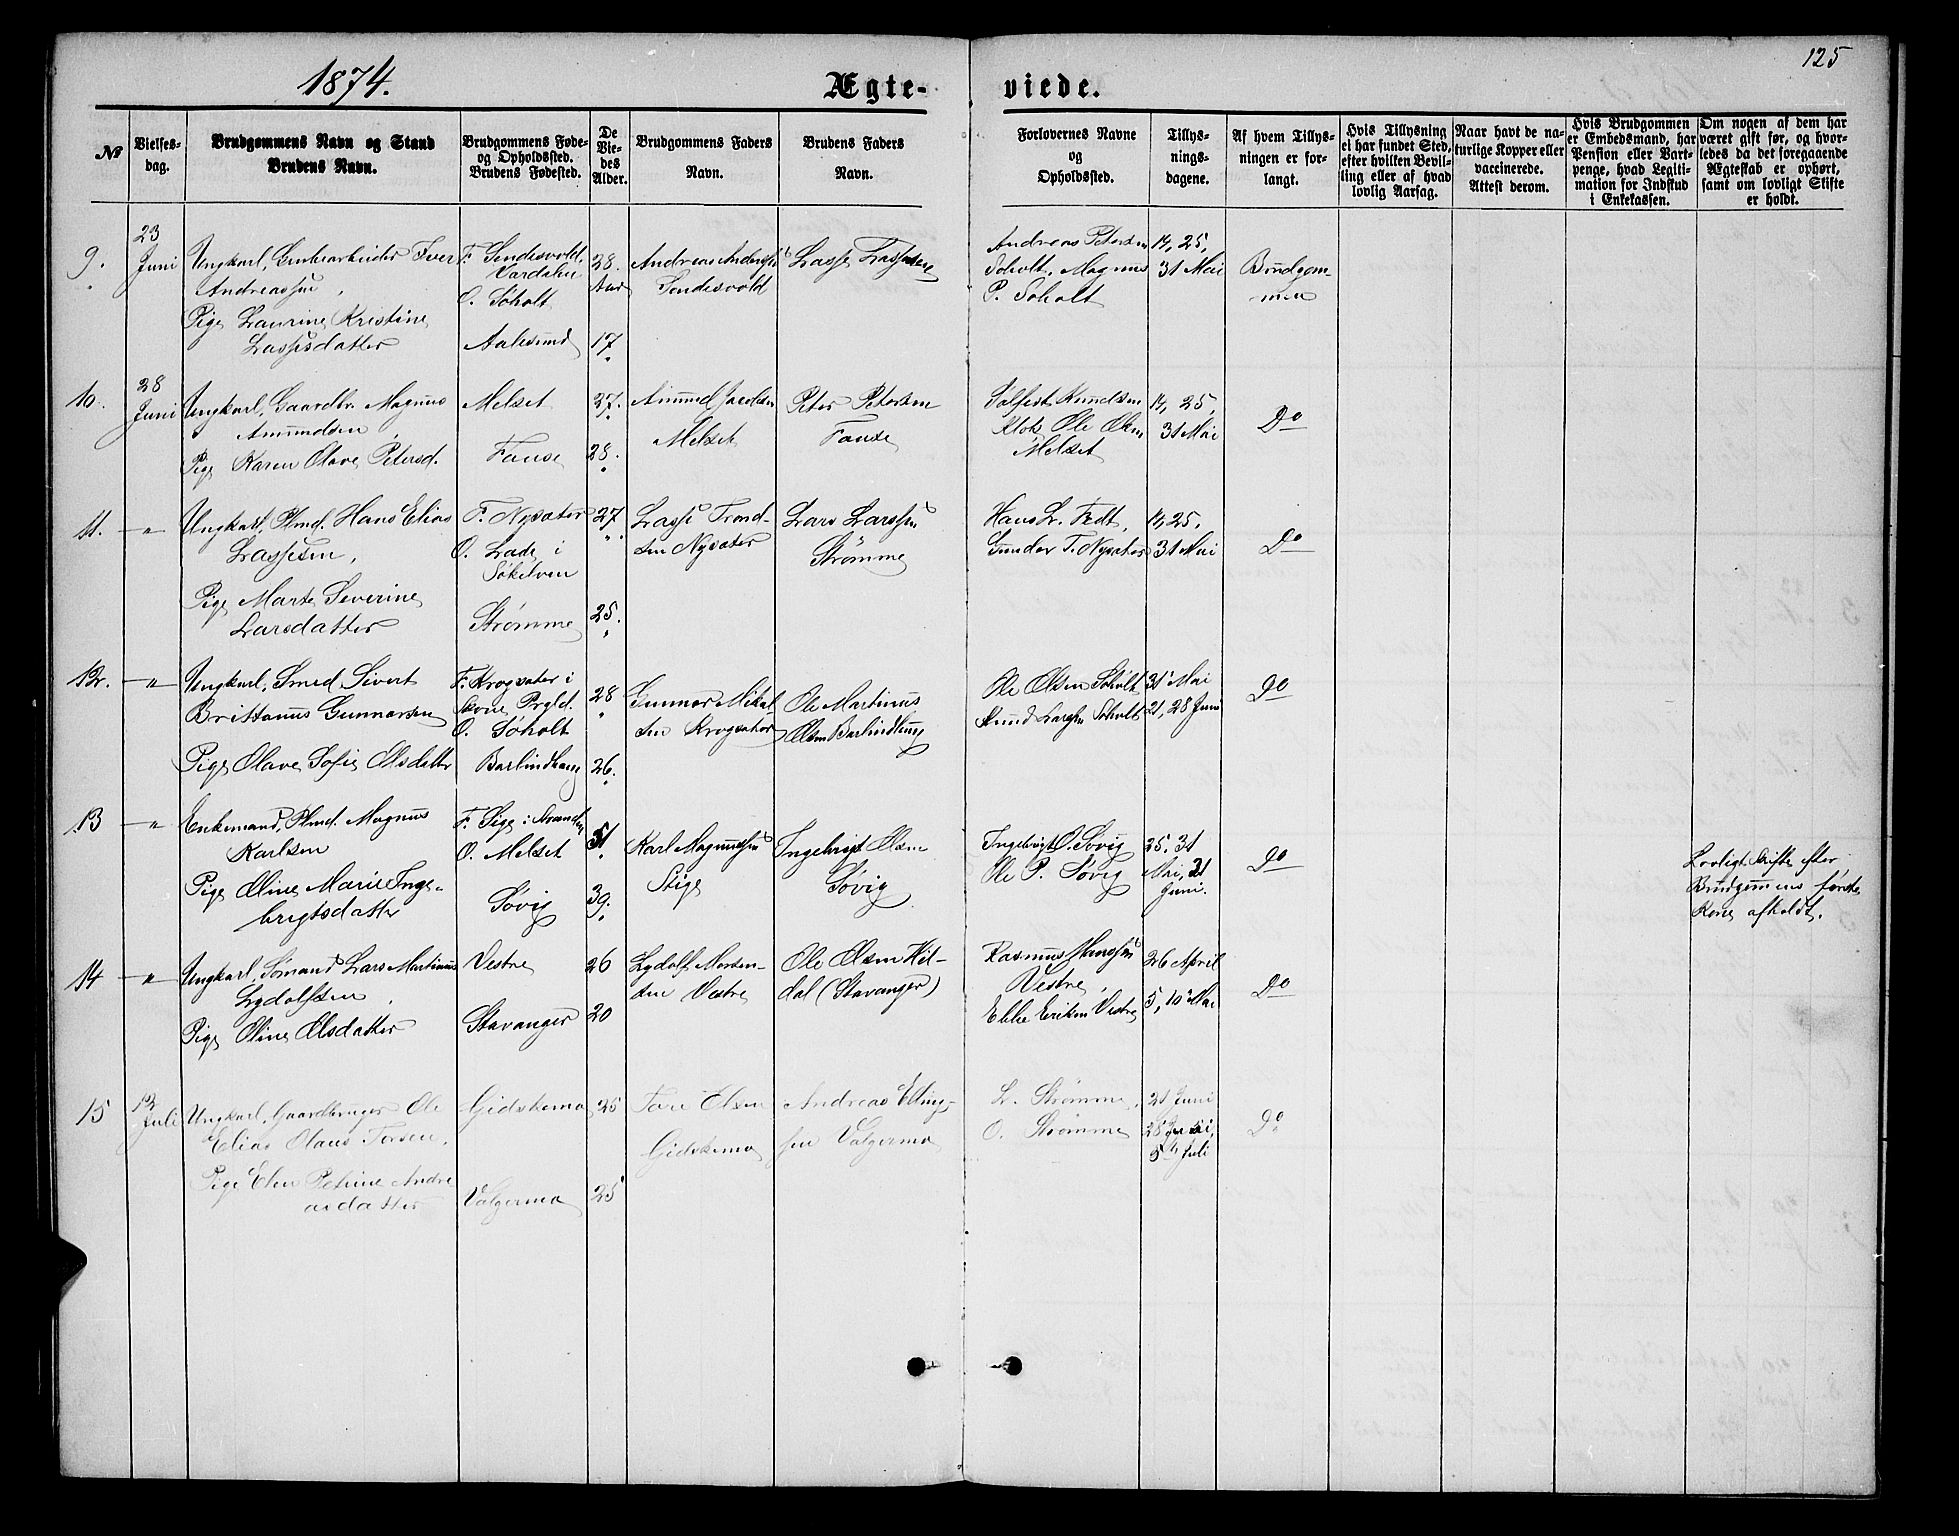 1874.
Ægte-
viede.
125
№
Vielses-
dag.
Brudgommens Navn og Stand
Brudens Navn.
Brudgommens Føde-
og Opholdssted.
Brudens Fødested.
De
Vie-
des
Alder.
Brudgommens Faders
Navn.
Brudens Faders
Navn.
Forlovernes Navne
og
Opholdssted.
Tillys-
nings-
dagene.
Af hvem Tillys-
ningen er for-
langt.
Hvis Tillysning
ei har fundet Sted,
efter hvilken Bevil-
ling eller af hvad
lovlig Aarsag.
Naar havt de na-
turlige Kopper eller
vaccinerede.
Attest derom.
Hvis Brudgommen
er Embedsmand, har
Pension eller Vart-
penge, hvad Legiti-
mation for Indskud
i Enkekassen.
Om nogen af dem har
været gift før, og hvor-
ledes da det foregaaende
Ægteskab er ophørt,
samt om lovligt Skifte
er holdt.
9.
23
Juni
Ungkarl, Iver
Andreassen,
Pige Laurine Kristine
Lassesdatter
F. Sendesvold,
Vardalen
O. Søholt
Aalesund
28.
Aar
17
Andreas Anderssen
Sendesvold
Lasse Lassesen
Andreas Petersen
Soholt, Magnus
P. Soholt
14, 25,
31 Mai
Brudgom-
men
10.
28
Juni
Ungkarl, Gaardbr. Magnus
Amundsen,
Pige Karen Olave Petersd.
Melset
Fause
27.
28.
Amund Jacobsen
Melset
Peter Petersen
Fause
Sølfest Knudsen
Klok Ole Olsen
Melset
14, 25,
31 Mai
Do
11.
"
Ungkarl, Plmd. Hans Elias
Lassesen,
Pige Marte Severine
Larsdatter
F. Nysæter
O. Lade i
Søkelven
Strømme
27
25.
Lasse Trond-
sen Nysæter
Lars Larssen
Strømme
Hans L. Fedt,
Gunder T. Nysæter
14, 25.
31 Mai
Do
12.
"
Ungkarl, Smed Sivert
Brittanus Gunnarsen
Pige Olave Sofie Olsdatter
F. Krogsæter i
Prgld.
O. Søholt
Barlindhaug
28
26.
Gunnar Mikal-
sen Krogsæter
Ole Martinus
Olsen Barlindhaug
Ole Olsen Soholt
Knud Larssen Soholt
31 Mai
21, 28 Juni
Do
13
"
Enkemand, Plmd. Magnus
Karlsen
Pige Oline Marie Inge-
brigtsdatter
F. Stige i Stranden
O. Melset
Søvig
51
39.
Karl Magnussen
Stige
Ingebrigt Olsen
Søvig
Ingebrigt O. Søvig
Ole P. Søvig
25, 31
Mai, 21
Juni.
Do
Lovligt Skifte efter
Brudgommens første
Kone afholdt.
14
"
Ungkarl, Sømand Lars Martinus
Lydolfsen,
Pige Oline Olsdatter
Vestre
Stavanger
26
20
Lydolf Morten-
sen Vestre
Ole Olsen Hil-
dal (Stavanger)
Rasmus Hanssen
Vestre,
Ebbe Eriksen Vestre
26 April
5, 10 Mai
Do
15
12
Juli
Ungkarl, Gaardbruger Ole
Elias Olaus Torsen,
Pige Elen Petrine Andre
asdatter
Gidskemo
Valgermo
25
25
Tore Elsen
Gidskemo
Andreas Elling-
sen Valgermo
L. Strømme,
O. Strømme
21 Juni
28 Juni,
5te Juli
Do